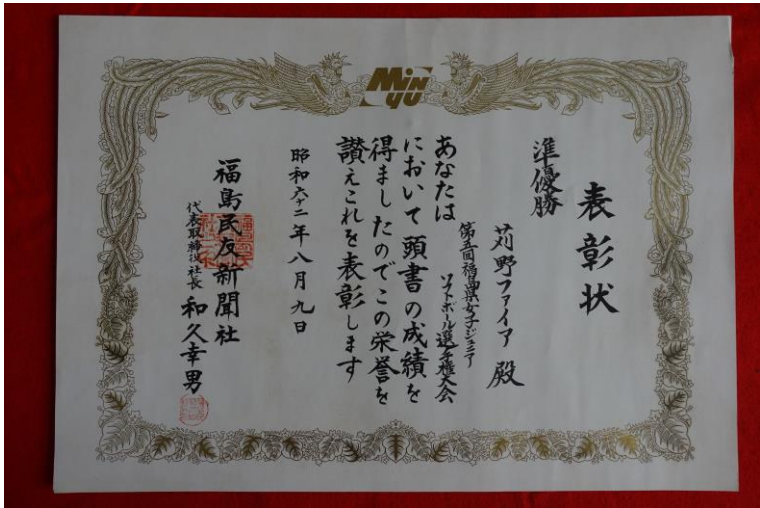 MiNYU
表彰状
準優勝
苅野ファイア 殿
あなたは
第五回福島県女子ジュニア
ソフトボール選手権大会
において頭書の成績を
得ましたのでこの栄誉を
讃えこれを表彰します
昭和六十二年八月九日
福島民友新聞社
代表取締役社長 和久幸男